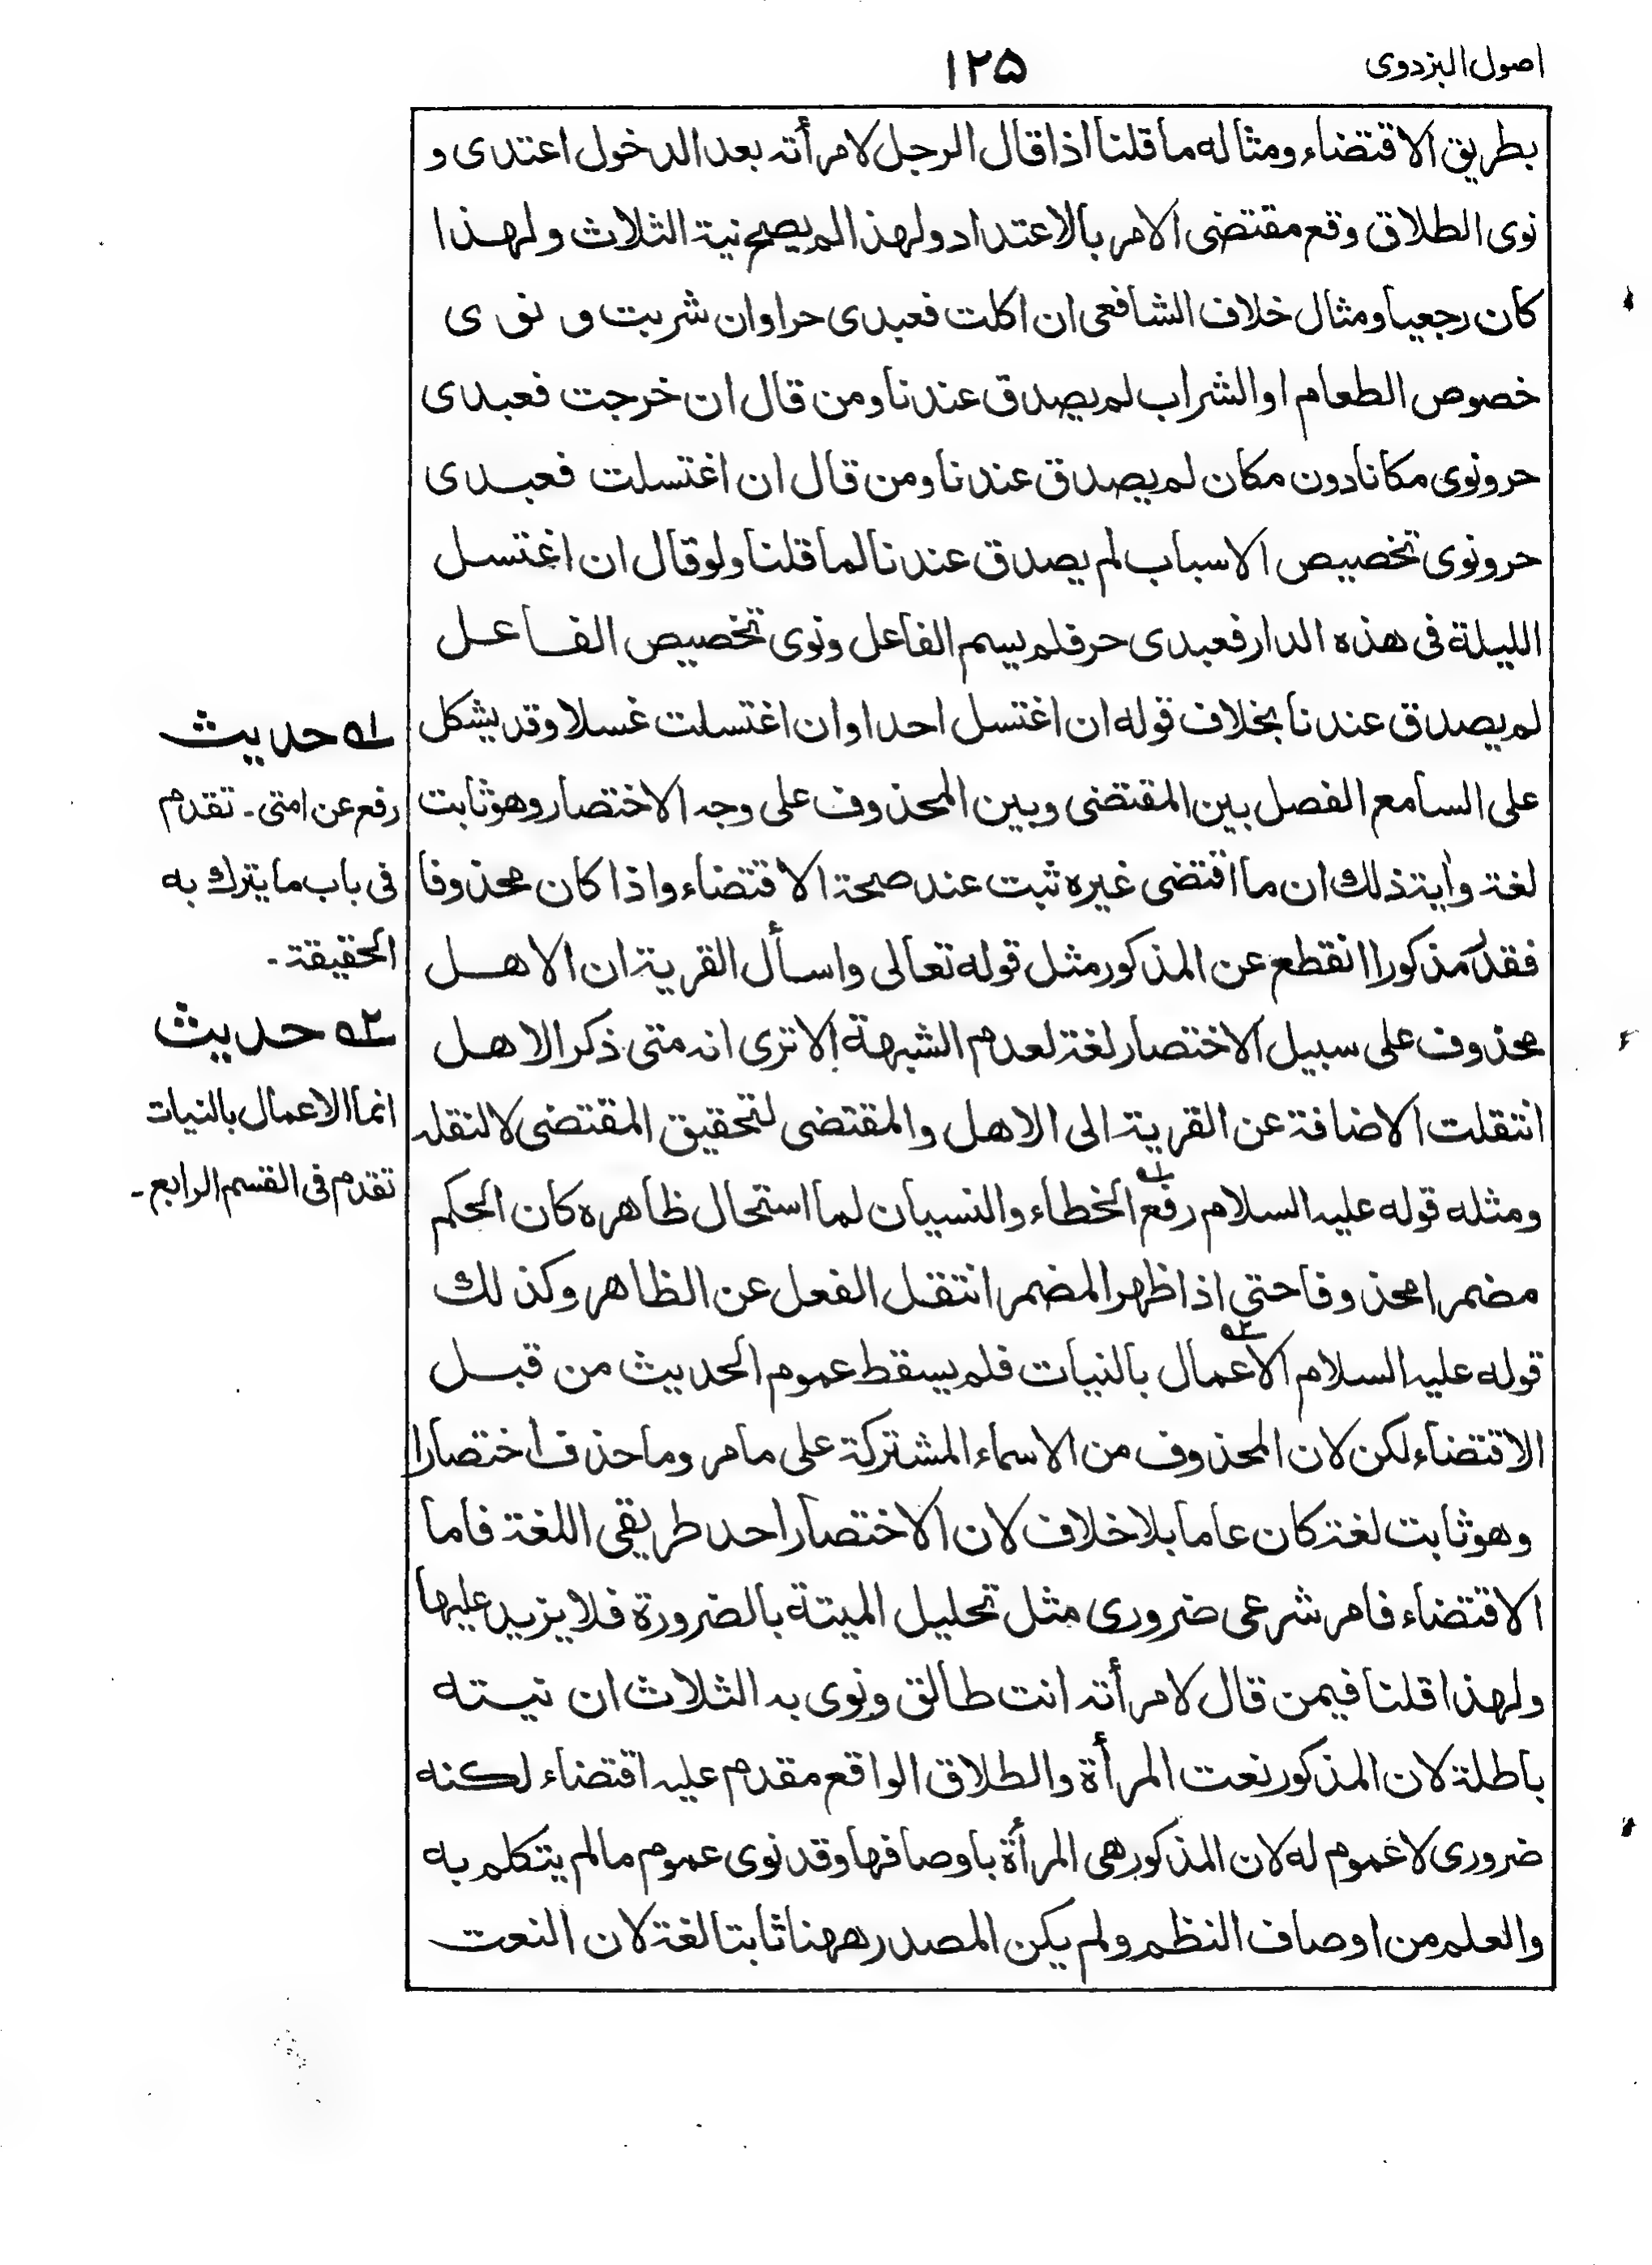 اصول البزدوی
۱۲۵
بطريق الاقتضاء ومثاله ما قلنا اذا قال الرجل لامرأته بعد الدخول اعتدى و
نوى الطلاق وقع مقتضى الامر بالاعتداد ولهذا لم يصح نية الثلاث ولهذا
كان رجعيا ومثال خلاف الشافعى ان اكلت فعبدى حر او ان شربت و نوى
خصوص الطعام او الشراب لم يصدق عندنا ومن قال ان خرجت فعبدى
حر ونوى مكانا دون مكان لم يصدق عندنا ومن قال ان اغتسلت فعبدى
حر ونوى تخصيص الاسباب لم يصدق عندنا لما قلنا ولو قال ان اغتسل
الليلة فى هذه الدار فعبدى حر فلم يسم الفاعل ونوى تخصيص الفاعل
لم يصدق عندنا بخلاف قوله ان اغتسل احد او ان اغتسلت غسلا وقد يشكل
على السامع الفصل بين المقتضى وبين المحذوف على وجه الاختصار وهو ثابت
لغة وأية ذلك ان ما اقتضى غيره ثبت عند صحة الاقتضاء واذا كان محذوفا
فقدّر مذكورا انقطع عن المذكور مثل قوله تعالى واسأل القرية ان الاهل
محذوف على سبيل الاختصار لغة لعدم الشبهة الا ترى انه متى ذكر الاهل
انتقلت الاضافة عن القرية الى الاهل والمقتضى لتحقيق المقتضى لا لنقله
ومثله قوله عليه السلام رفع ۱؎ الخطاء والنسيان لما استحال ظاهره كان الحكم
مضمرا محذوفا حتى اذا ظهر المضمر انتقل الفعل عن الظاهر وكذلك
قوله عليه السلام ۲؎ الاعمال بالنيات فلم يسقط عموم الحديث من قبل
الاقتضاء لكن لان المحذوف من الاسماء المشتركة على ما مر وما حذف اختصارا
وهو ثابت لغة كان عاما بلا خلاف لان الاختصار احد طريقى اللغة فاما
الاقتضاء فامر شرعى ضرورى مثل تحليل الميتة بالضرورة فلا يزيد عليها
ولهذا قلنا فيمن قال لامرأته انت طالق ونوى به الثلاث ان نيته
باطلة لان المذكور نعت المرأة والطلاق الواقع مقدم عليه اقتضاء لكنه
ضرورى لا عموم له لان المذكور هى المرأة باوصافها وقد نوى عموم ما لم يتكلم به
والعلم من اوصاف النظم ولم يكن المصدر ههنا ثابتا لغة لان النعت
۱؎ حديث
رفع عن امتى ۔ تقدم
فى باب ما يترك به
الحقيقة ۔
۲؎ حديث
انما الاعمال بالنيات
تقدم فى القسم الرابع ۔